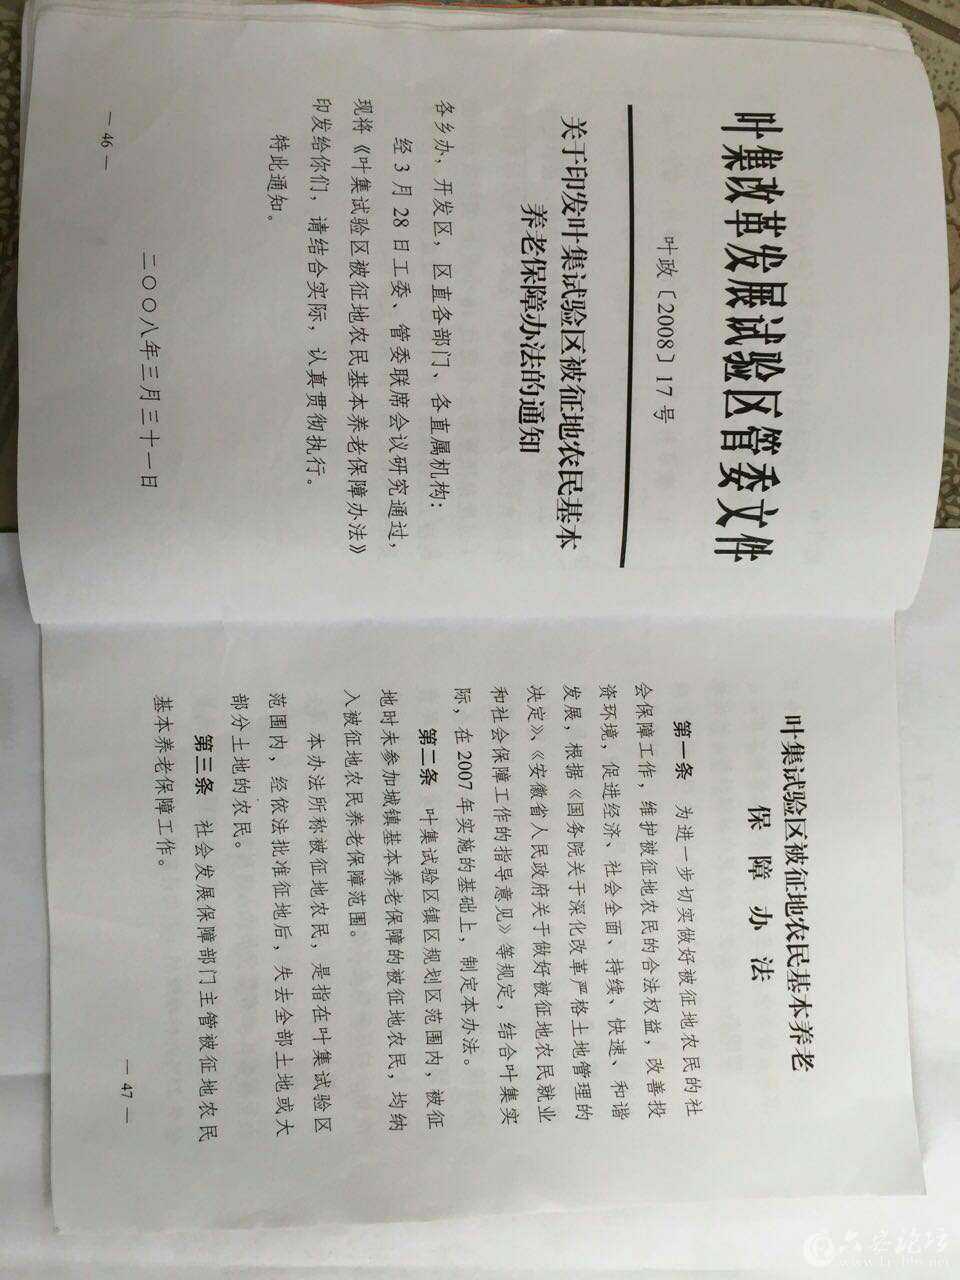 叶集改革发展试验区管委文件
叶政〔2008〕17号
关于印发叶集试验区被征地农民基本
养老保障办法的通知
各乡办，开发区，区直各部门、各直属机构：
经3月28日工委、管委联席会议研究通过，
现将《叶集试验区被征地农民基本养老保障办法》
印发给你们，请结合实际，认真贯彻执行。
特此通知。
二〇〇八年三月三十一日
— 46 —
叶集试验区被征地农民基本养老
保障办法
第一条 为进一步切实做好被征地农民的社
会保障工作，维护被征地农民的合法权益，改善投
资环境，促进经济、社会全面、持续、快速、和谐
发展，根据《国务院关于深化改革严格土地管理的
决定》、《安徽省人民政府关于做好被征地农民就业
和社会保障工作的指导意见》等规定，结合叶集实
际，在2007年实施的基础上，制定本办法。
第二条 叶集试验区镇区规划区范围内，被征
地时未参加城镇基本养老保障的被征地农民，均纳
入被征地农民养老保障范围。
本办法所称被征地农民，是指在叶集试验区
范围内，经依法批准征地后，失去全部土地或大
部分土地的农民。
第三条 社会发展保障部门主管被征地农民
基本养老保障工作。
— 47 —
六安论坛